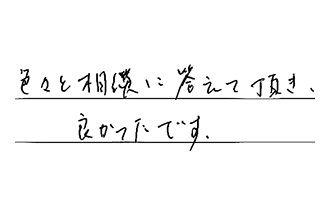 色々と相談に答えて頂き、
良かったです。